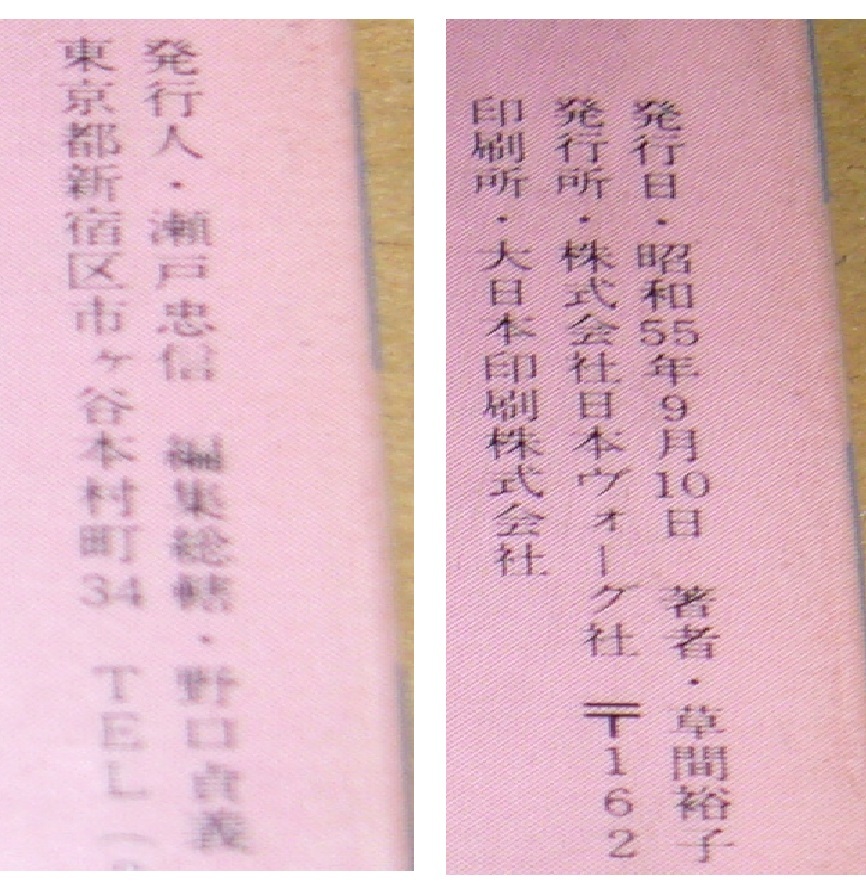 発行人・瀬戸忠信　編集総轄・野口貞義
東京都新宿区市ヶ谷本村町34　TEL
発行日・昭和55年9月10日　著者・草間裕子
発行所・株式会社日本ヴォーグ社　〒162
印刷所・大日本印刷株式会社